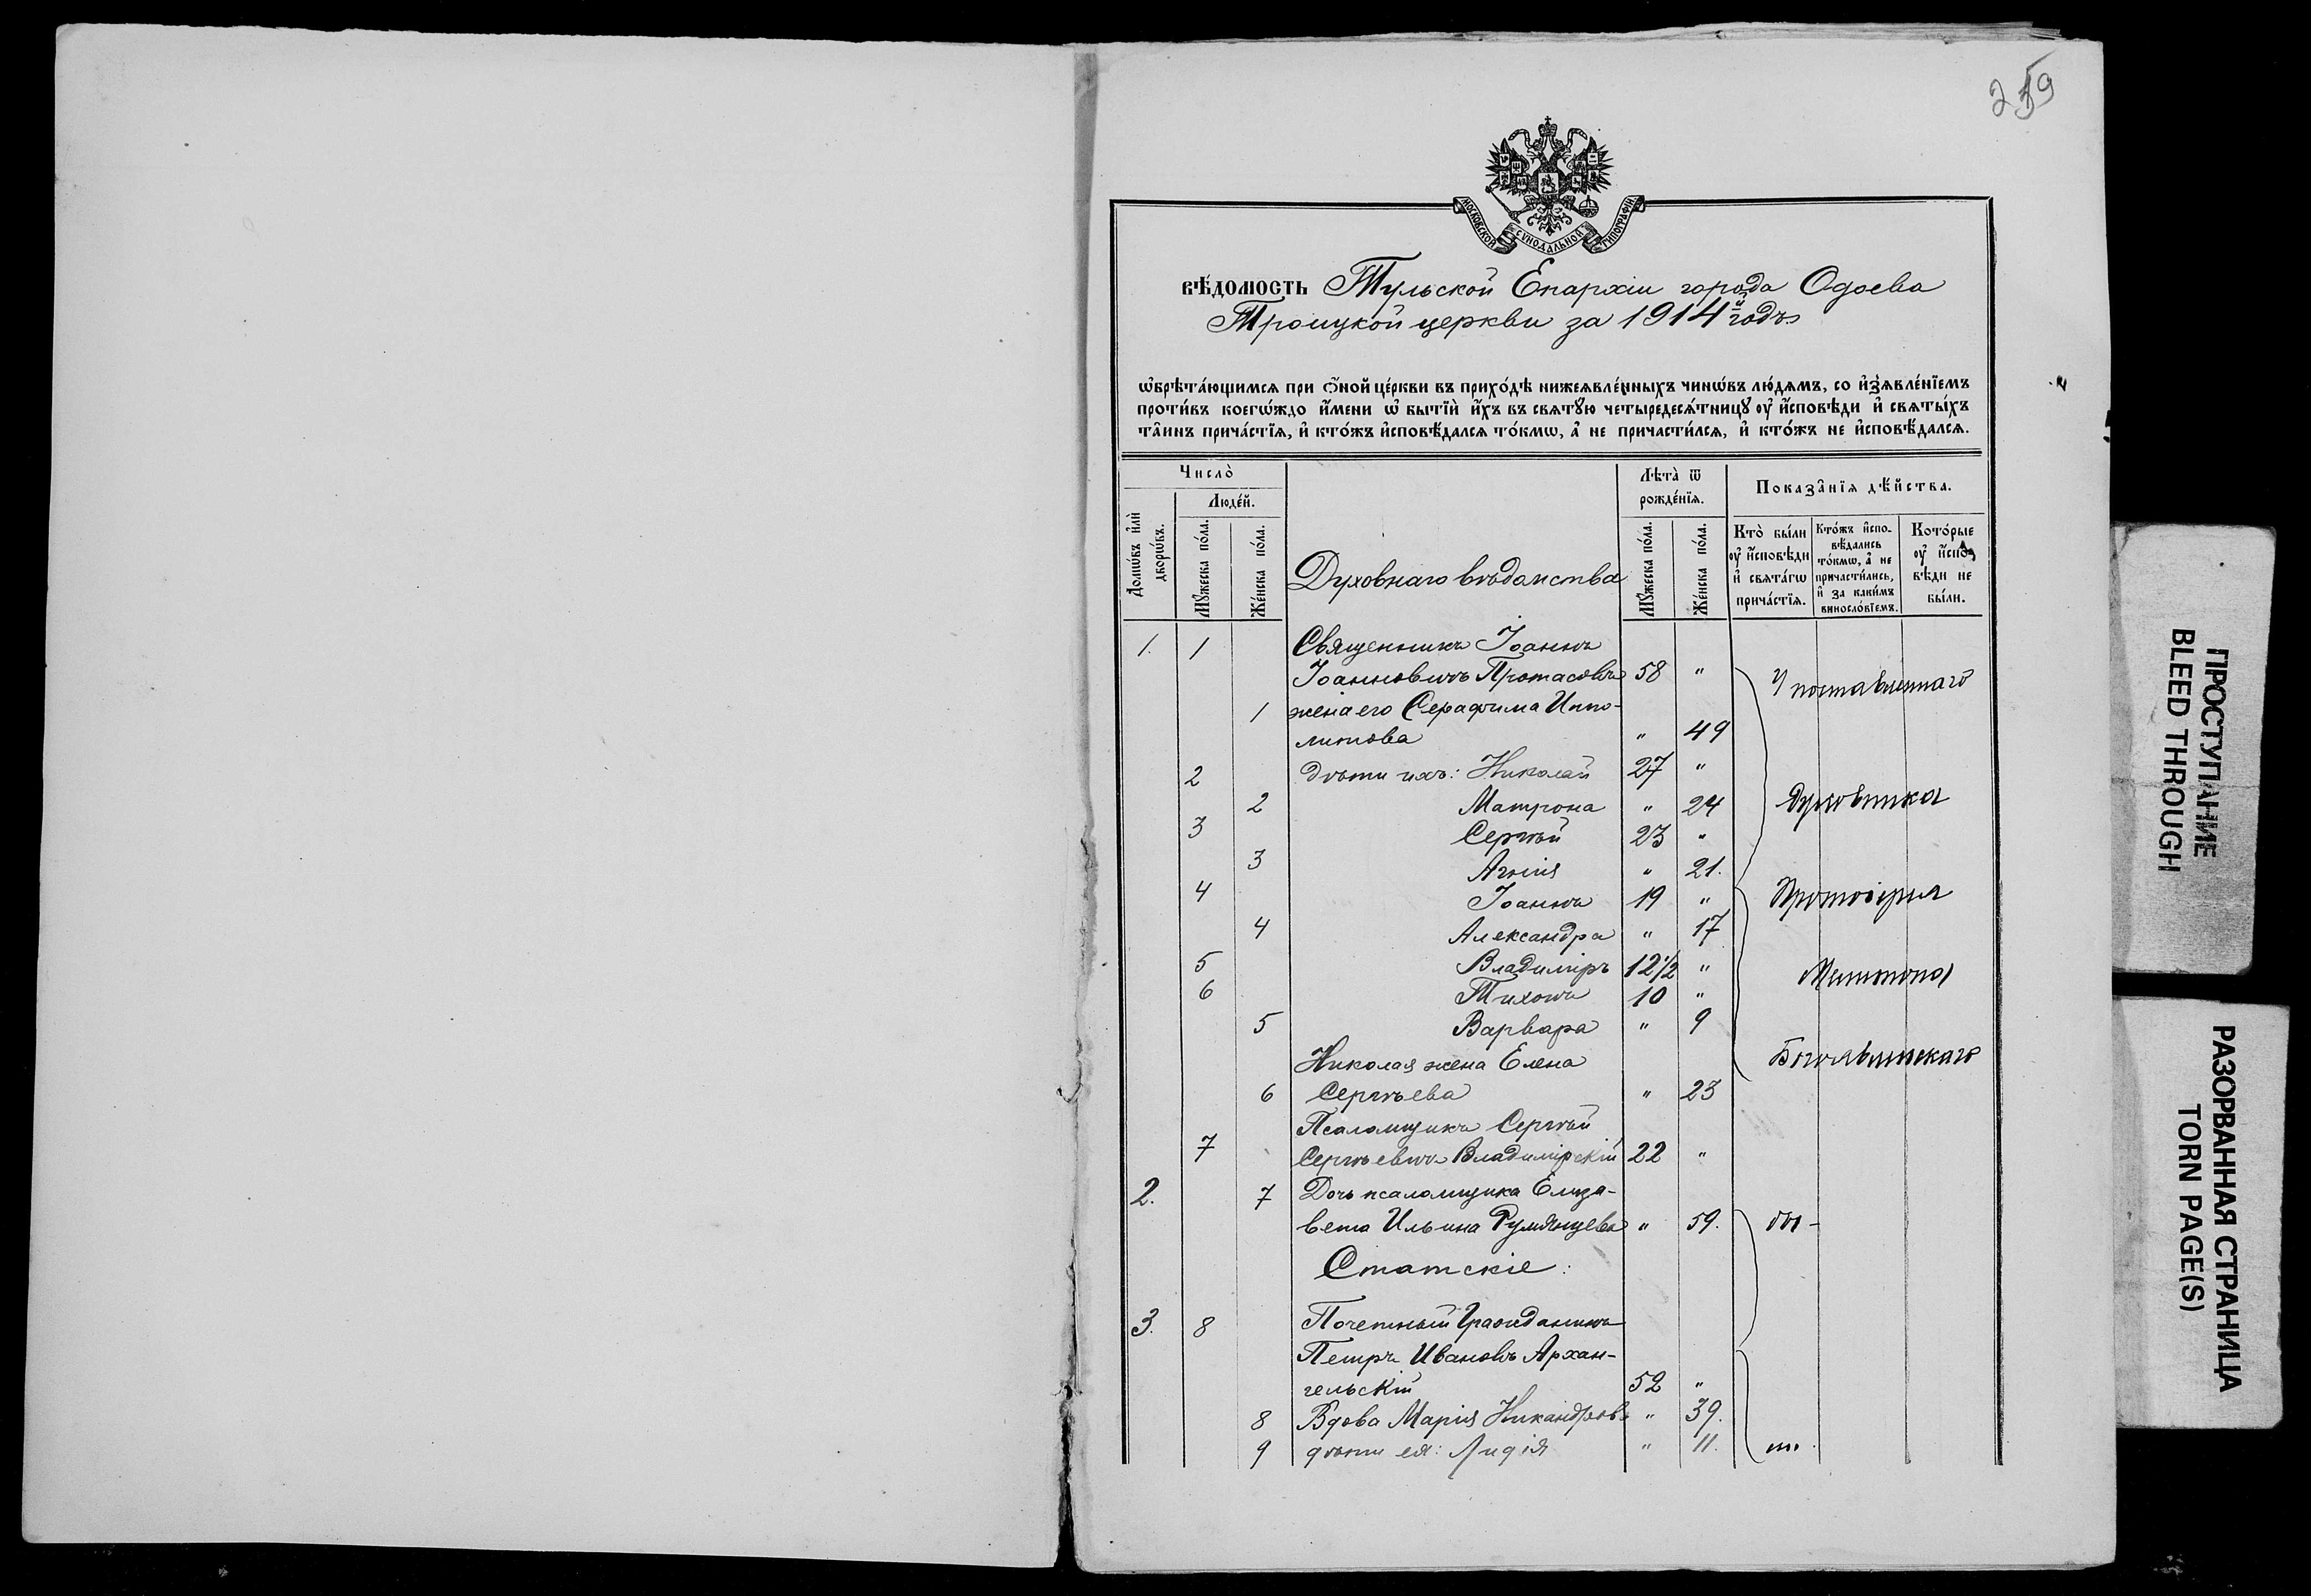 259
МОСКОВСКОЙ СѴНОДАЛЬНОЙ ТИПОГРАФІИ
вѣ́домость Тульской Епархіи города Одоева
Троицкой церкви за 1914й годъ
ѡ҆брѣта́ющимся при ѻ҆́ной це́ркви въ прихо́дѣ нижеявле́нныхъ чинѡ́въ лю́дямъ, со и҆зъявле́нїемъ
проти́въ коегѡ́ждо и҆́мени ѡ҆ бытїѝ и҆́хъ въ свѧтꙋ́ю четыредесѧ́тницꙋ ѹ҆ и҆́сповѣди и҆ свѧты́хъ
та̑инъ прича́стїѧ, и҆ кто́жъ и҆сповѣ́далсѧ то́кмѡ, а҆ не причасти́лсѧ, и҆ кто́жъ не и҆сповѣ́далсѧ.
Число̀
Люде́й.
Домѡ́въ и҆лѝ дворѡ́въ.
Мꙋ́жеска по́ла.
Же́нска по́ла.
Духовнаго вѣдомства
Лѣта̀ ѿ рожде́нїѧ.
Мꙋ́жеска по́ла.
Же́нска по́ла.
Показа̑нїѧ дѣ́йства.
Кто̀ бы́ли ѹ҆ и҆́сповѣди и҆ свѧта́гѡ прича́стїѧ.
Кто́жъ и҆спо- вѣ́дались то́кмѡ, а҆ не причасти́лись, и҆ за каки́мъ виносло́вїемъ.
Кото́рые ѹ҆ и҆́спо- вѣди не бы́ли.
1. 1 Священникъ Іоаннъ
Іоанновичъ Протасовъ 58 "
1 жена его Серафима Иппо-
литова " 49
2 дѣти ихъ: Николай 27 "
2 Матрона " 24
3 Сергѣй 23 "
3 " 21.
4 Іоаннъ 19 "
4 Александра " 17
5 Владиміръ 12½ "
6 Тихонъ 10 "
5 Варвара " 9
Николая жена Елена
6 Сергѣева " 23
Псаломщикъ Сергѣй
7 Сергѣевичъ Владимірскій 22 "
2. 7 Дочь псаломщика Елиза-
вета Ильина Румянцева " 59.
Статскіе:
3. 8 Почетный Гражданинъ
Петръ Ивановъ Архан-
гельскій 52 "
8 Вдова Марія Никандрова " 39.
9 дѣти ея: Лидія " 11.
У поставленнаго
духовника
Протоіерея
Богоявленскаго
ПРОСТУПАНИЕ
BLEED THROUGH
РАЗОРВАННАЯ СТРАНИЦА
TORN PAGE(S)